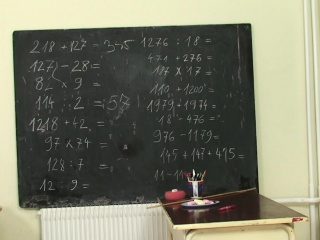 218 + 127 = 345
127 - 28 =
82 × 9 =
114 : 2 = 57
1218 + 42 =
97 × 74 =
128 : 7 =
12 : 9 =
1276 : 18 =
471 + 276 =
117 × 17 =
110 + 1200 =
1979 + 1974 =
18 - 476 =
976 - 1179 =
145 + 147 + 415 =